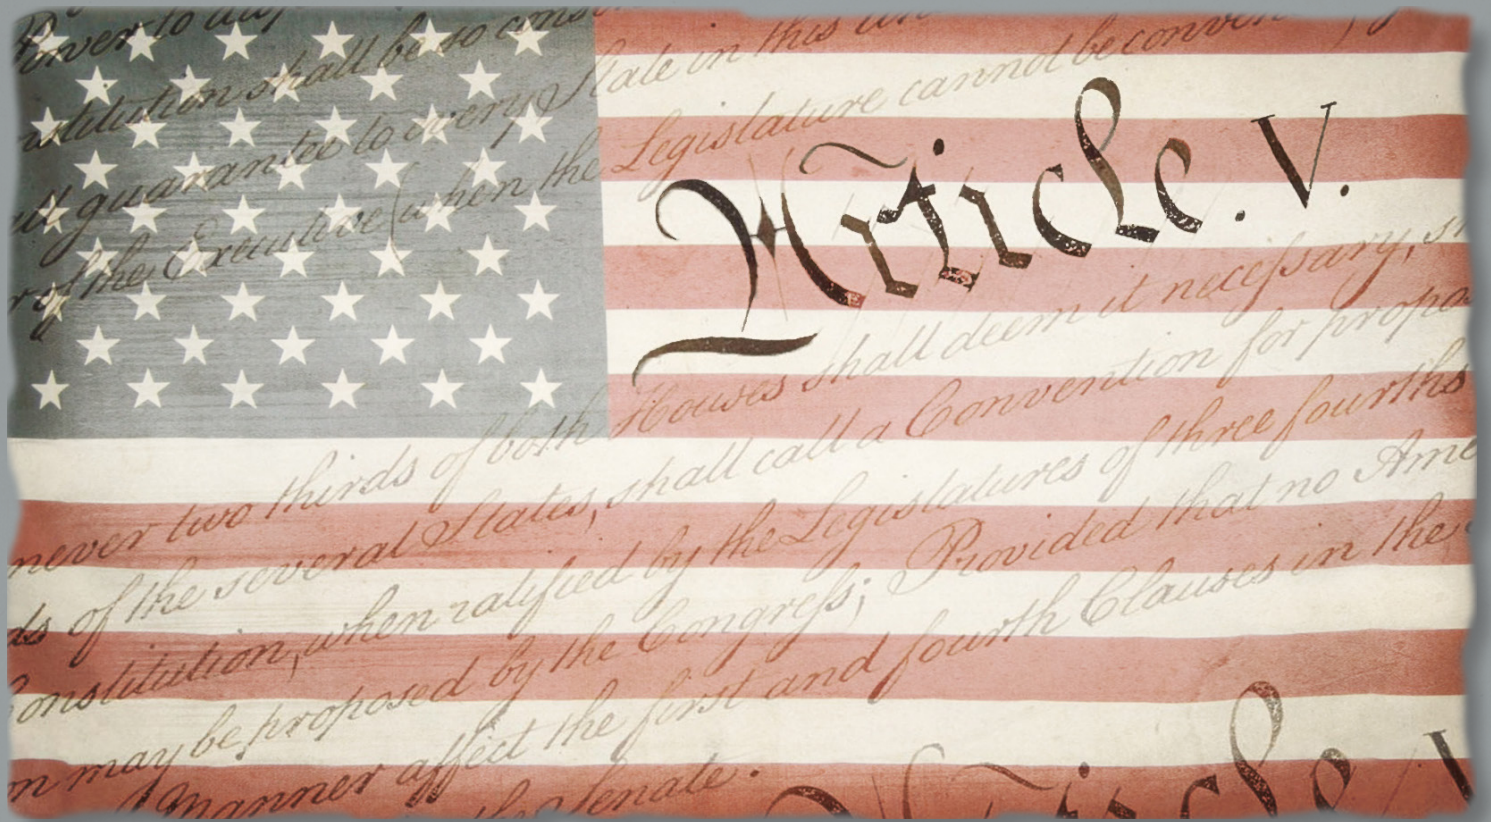 Power to
stitution shall be so cons
all guarantee to every State in this Un
r of the Executive (when the Legislature cannot be conven
Article. V.
never two thirds of both Houses shall deem it necessary, sh
ds of the several States, shall call a Convention for propo
onstitution, when ratified by the Legislatures of three fourths
n may be proposed by the Congress; Provided that no Ame
Manner affect the first and fourth Clauses in the
the Senate.
Article V